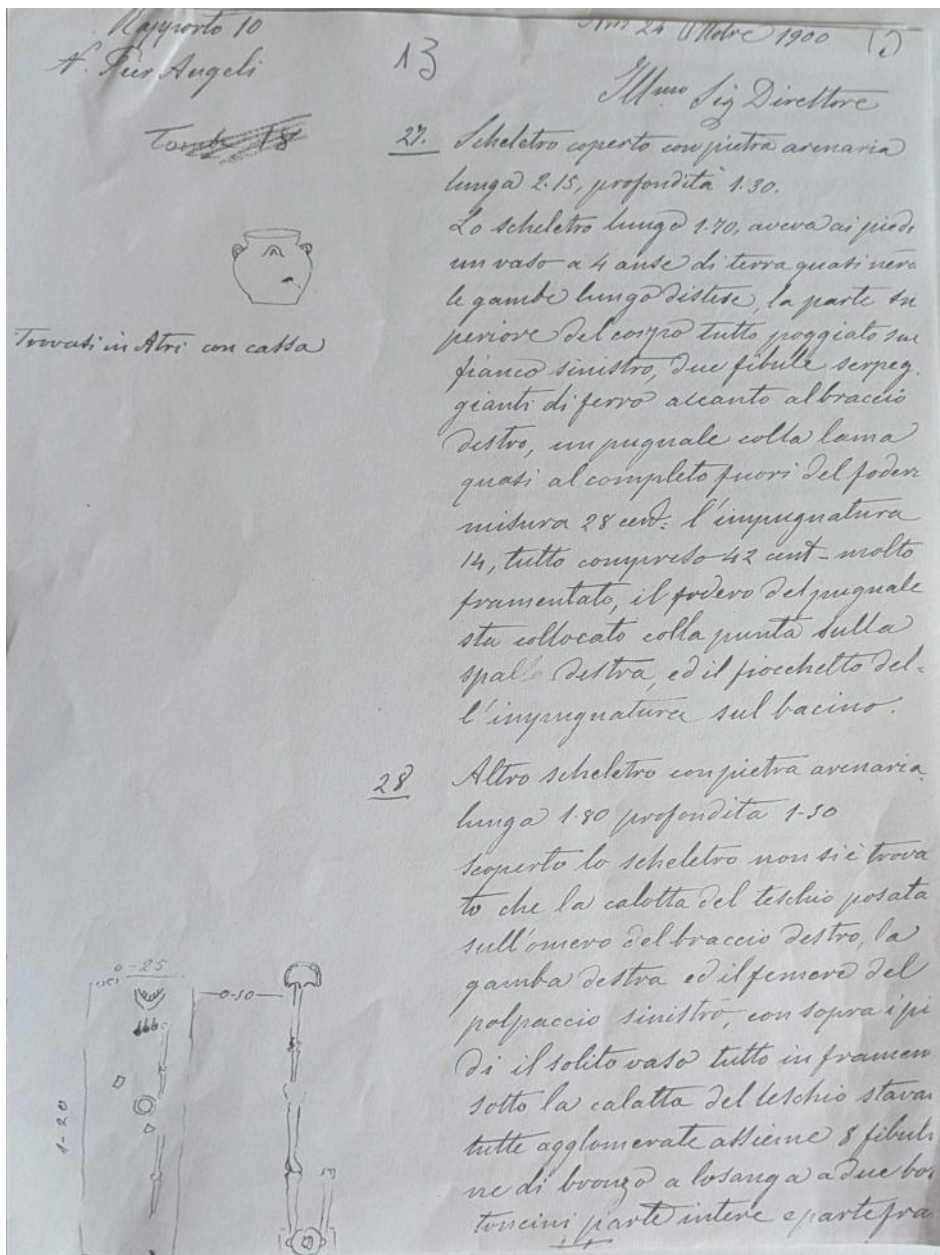 Rapporto 10
N. Pier Angeli
Tomba 18
Trovasi in Atri con cassa
13
24 Ottobre 1900
Ill.mo Sig Direttore
27. Scheletro coperto con pietra arenaria
lunga 2.15, profondità 1.30.
Lo scheletro lungo 1.70, aveva ai piedi
un vaso a 4 anse di terra quasi nera
le gambe lungo distese, la parte su
periore del corpo tutto poggiato sul
fianco sinistro, due fibule serpeg.
gianti di ferro accanto al braccio
destro, un pugnale colla lama
quasi al completo fuori del fodero
misura 28 cent: l'impugnatura
14, tutto compreso 42 cent - molto
framentato, il fodero del pugnale
sta collocato colla punta sulla
spalla destra, ed il fiocchetto del=
l'impugnatura sul bacino.
28 Altro scheletro con pietra arenaria
lunga 1.80 profondita 1-50
scoperto lo scheletro non si è trova
to che la calotta del teschio posata
sull'omero del braccio destro, la
gamba destra ed il femore del
polpaccio sinistro, con sopra i pi
di il solito vaso tutto in framen
sotto la calatta del teschio stavan
tutte agglomerate assieme 8 fibuli
ne di bronzo a losanga a due bot
toncini parte intere e parte fra
0-25
0-50
1-20